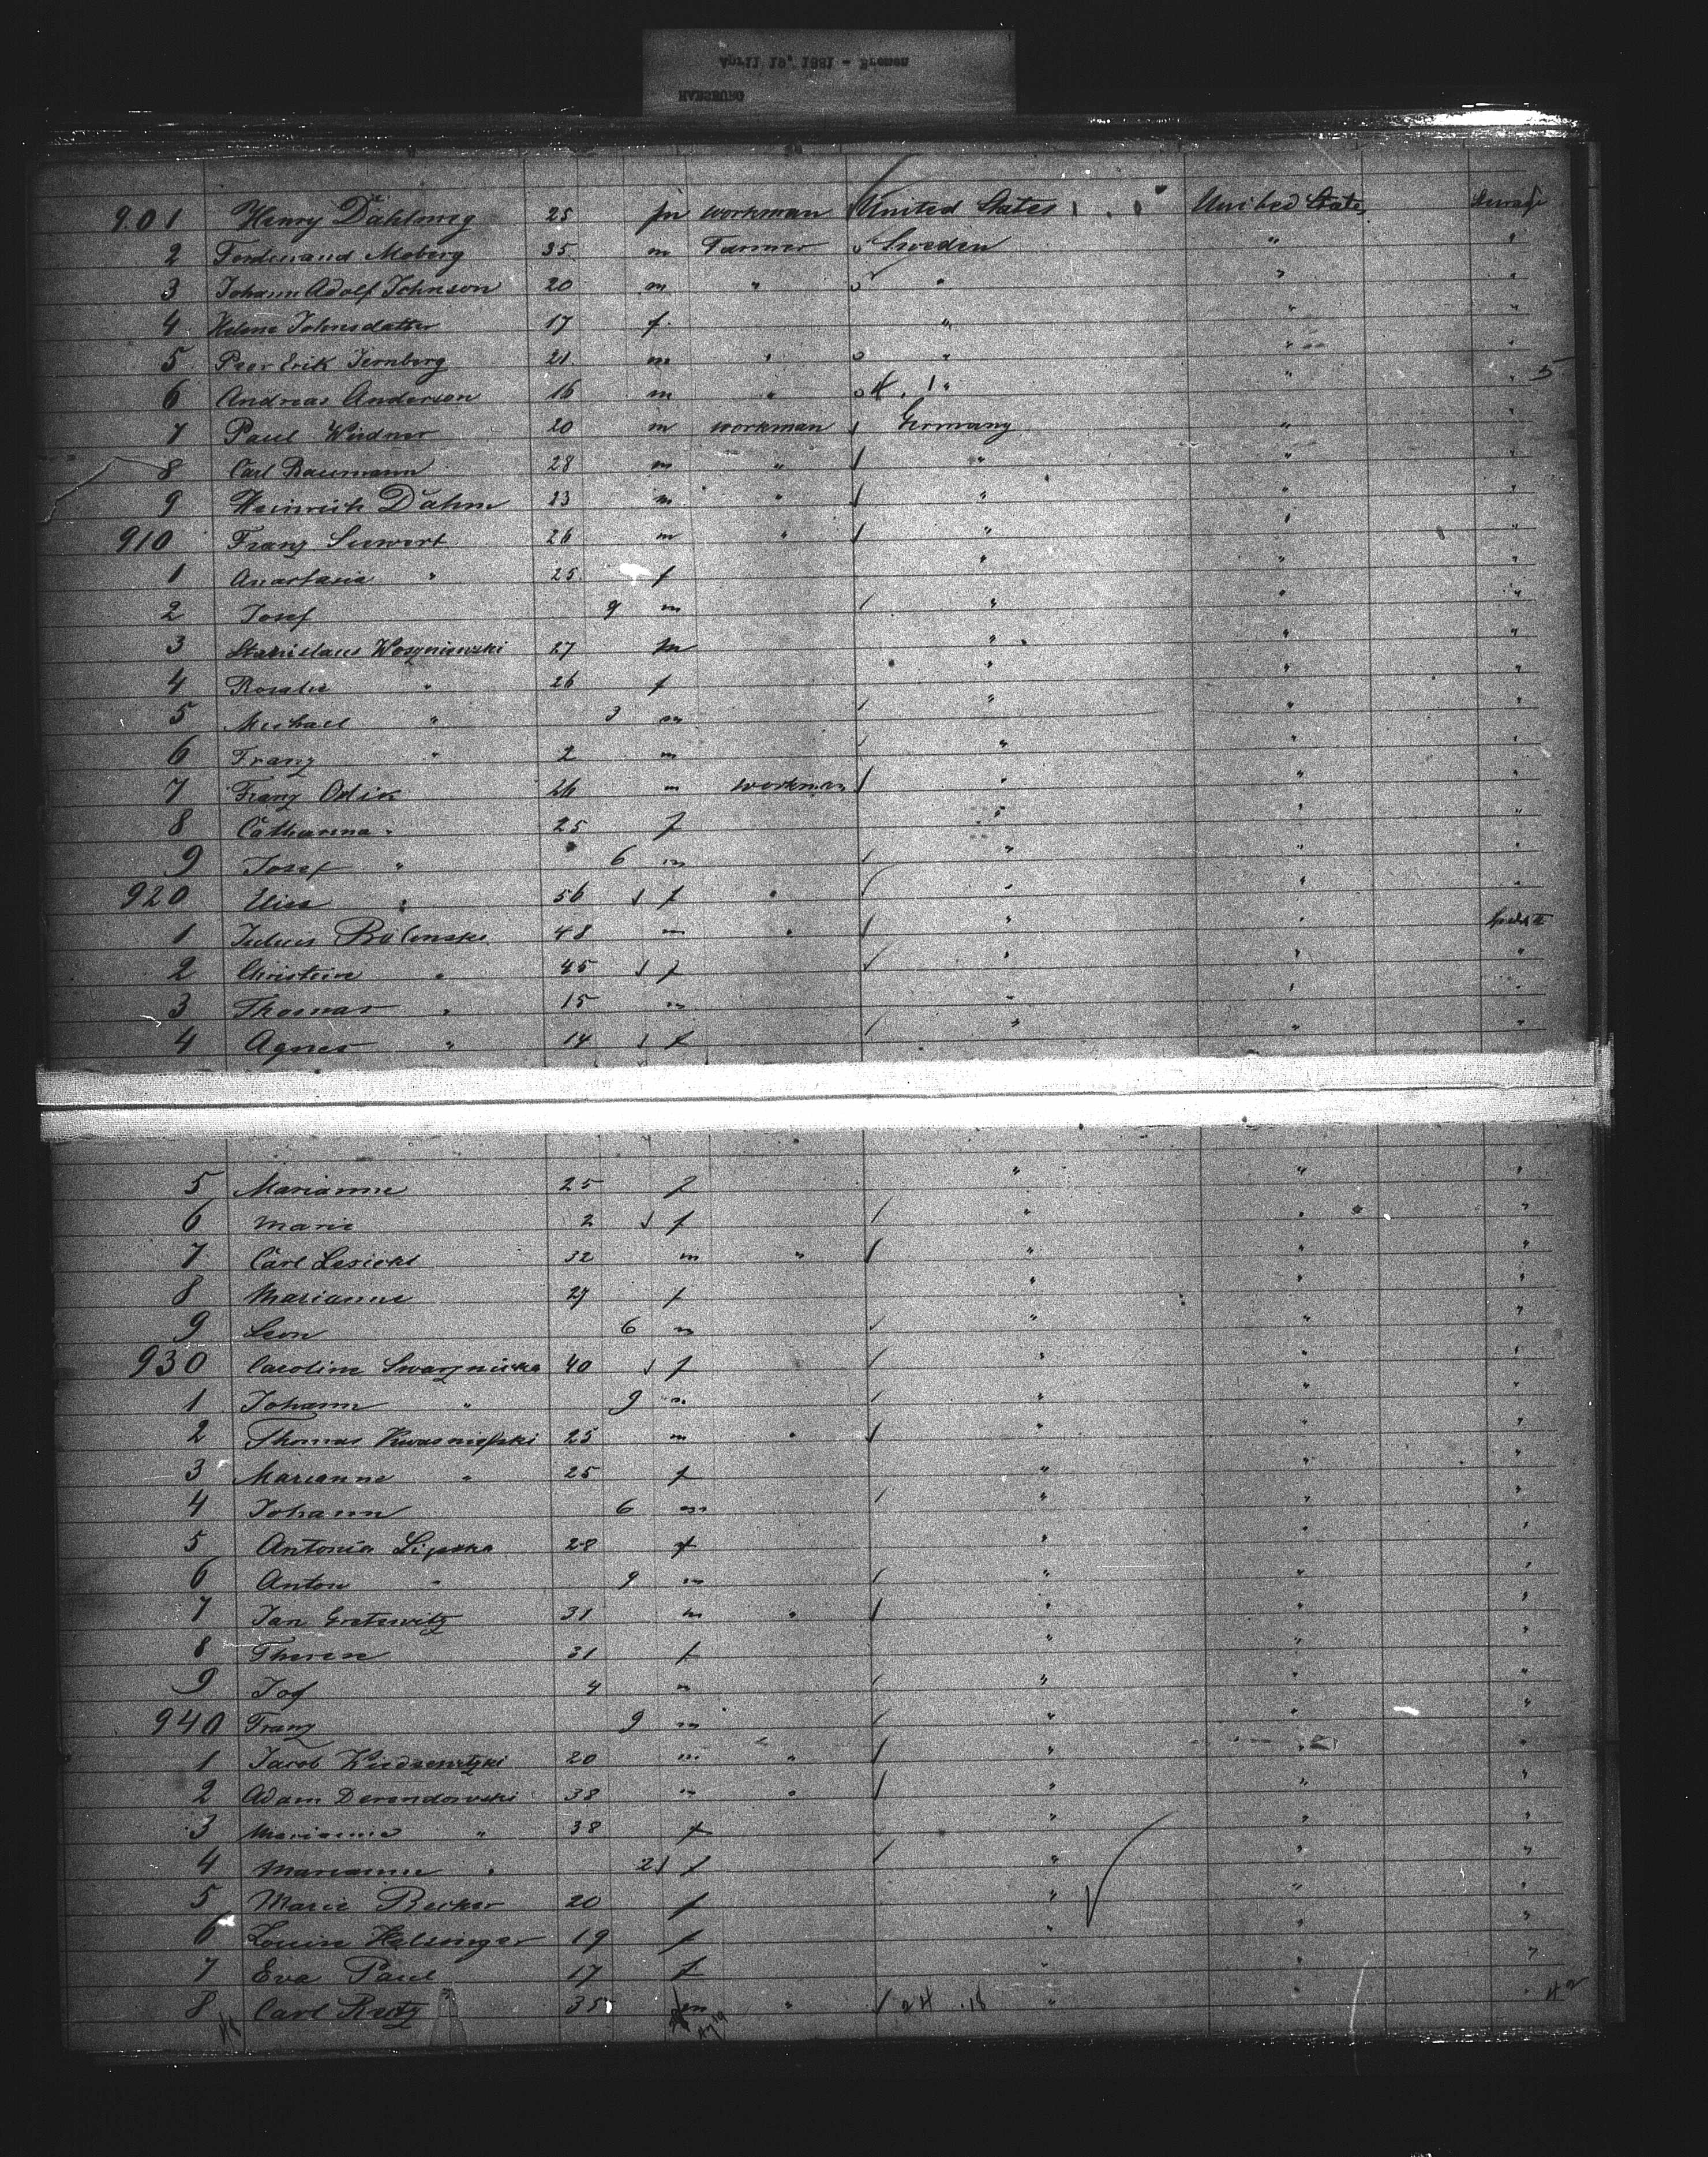 April 19, 1881 - Bremen
HABSBURG
901 Henry Dahlweg 25 m workman United States United States Steerage
2 Ferdinand Moberg 35 m Farmer Sweden " "
3 Johann Adolf Johnson 20 m " " " "
4 Helene Johnsdatter 17 f " " "
5 Peer Erik Jernberg 21 m " " " "
6 Andreas Anderson 16 m " " " " 5
7 Paul Weidner 20 m workman Germany " "
8 Carl Baumann 28 m " " " "
9 Heinrich Dahm 23 m " " " "
910 Franz Siewert 26 m " " " "
1 Anastasia " 25 f " " "
2 Josef 9 m " " "
3 Stanislaus Woszniewski 27 m " " "
4 Rosalie " 26 f " " "
5 Michael " 3 m " " "
6 Franz " 2 m " " "
7 Franz Odik 26 m workman " " "
8 Catharina " 25 f " " "
9 Josef " 6 m " " "
920 Elisa " 56 f " " " "
1 Julius 48 m " " "
2 Christine " 45 f " " "
3 Thomas " 15 m " " "
4 Agnes " 14 f " " "
5 Marianne 25 f " " "
6 Marie 2 f " " "
7 Carl Lesicki 32 m " " " "
8 Marianne 27 f " " "
9 Leon 6 m " " "
930 Caroline 40 f " " "
1 Johann " 9 m " " "
2 Thomas Kwasniefski 25 m " " " "
3 Marianne " 25 f " " "
4 Johann 6 m " " "
5 Antonia Lipska 28 f " " "
6 Anton " 9 m " " "
7 Jan 31 m " " " "
8 Therese 31 f " " "
9 Jos 4 m " " "
940 Franz 9 m " " "
1 Jacob 20 m " " " "
2 Adam Derendowski 38 m " " " "
3 Marianne " 38 f " " "
4 Marianne " 2 f " " "
5 Marie Becker 20 f " " "
6 Louise Helsinger 19 f " " "
7 Eva Paul 17 f " " "
8 Carl Reitz 35 m " 24 18 " " " 42